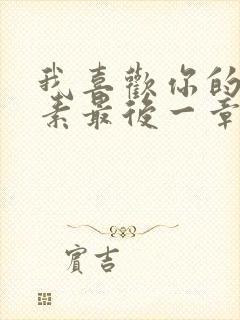 我喜歡你的
素最後一章
賓吉